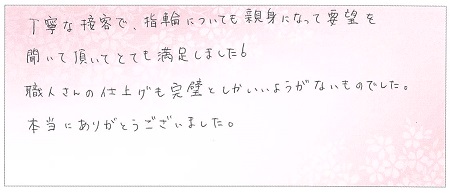 丁寧な接客で、指輪についても親身になって要望を
聞いて頂いてとても満足しました。
職人さんの仕上げも完璧としかいいようがないものでした。
本当にありがとうございました。